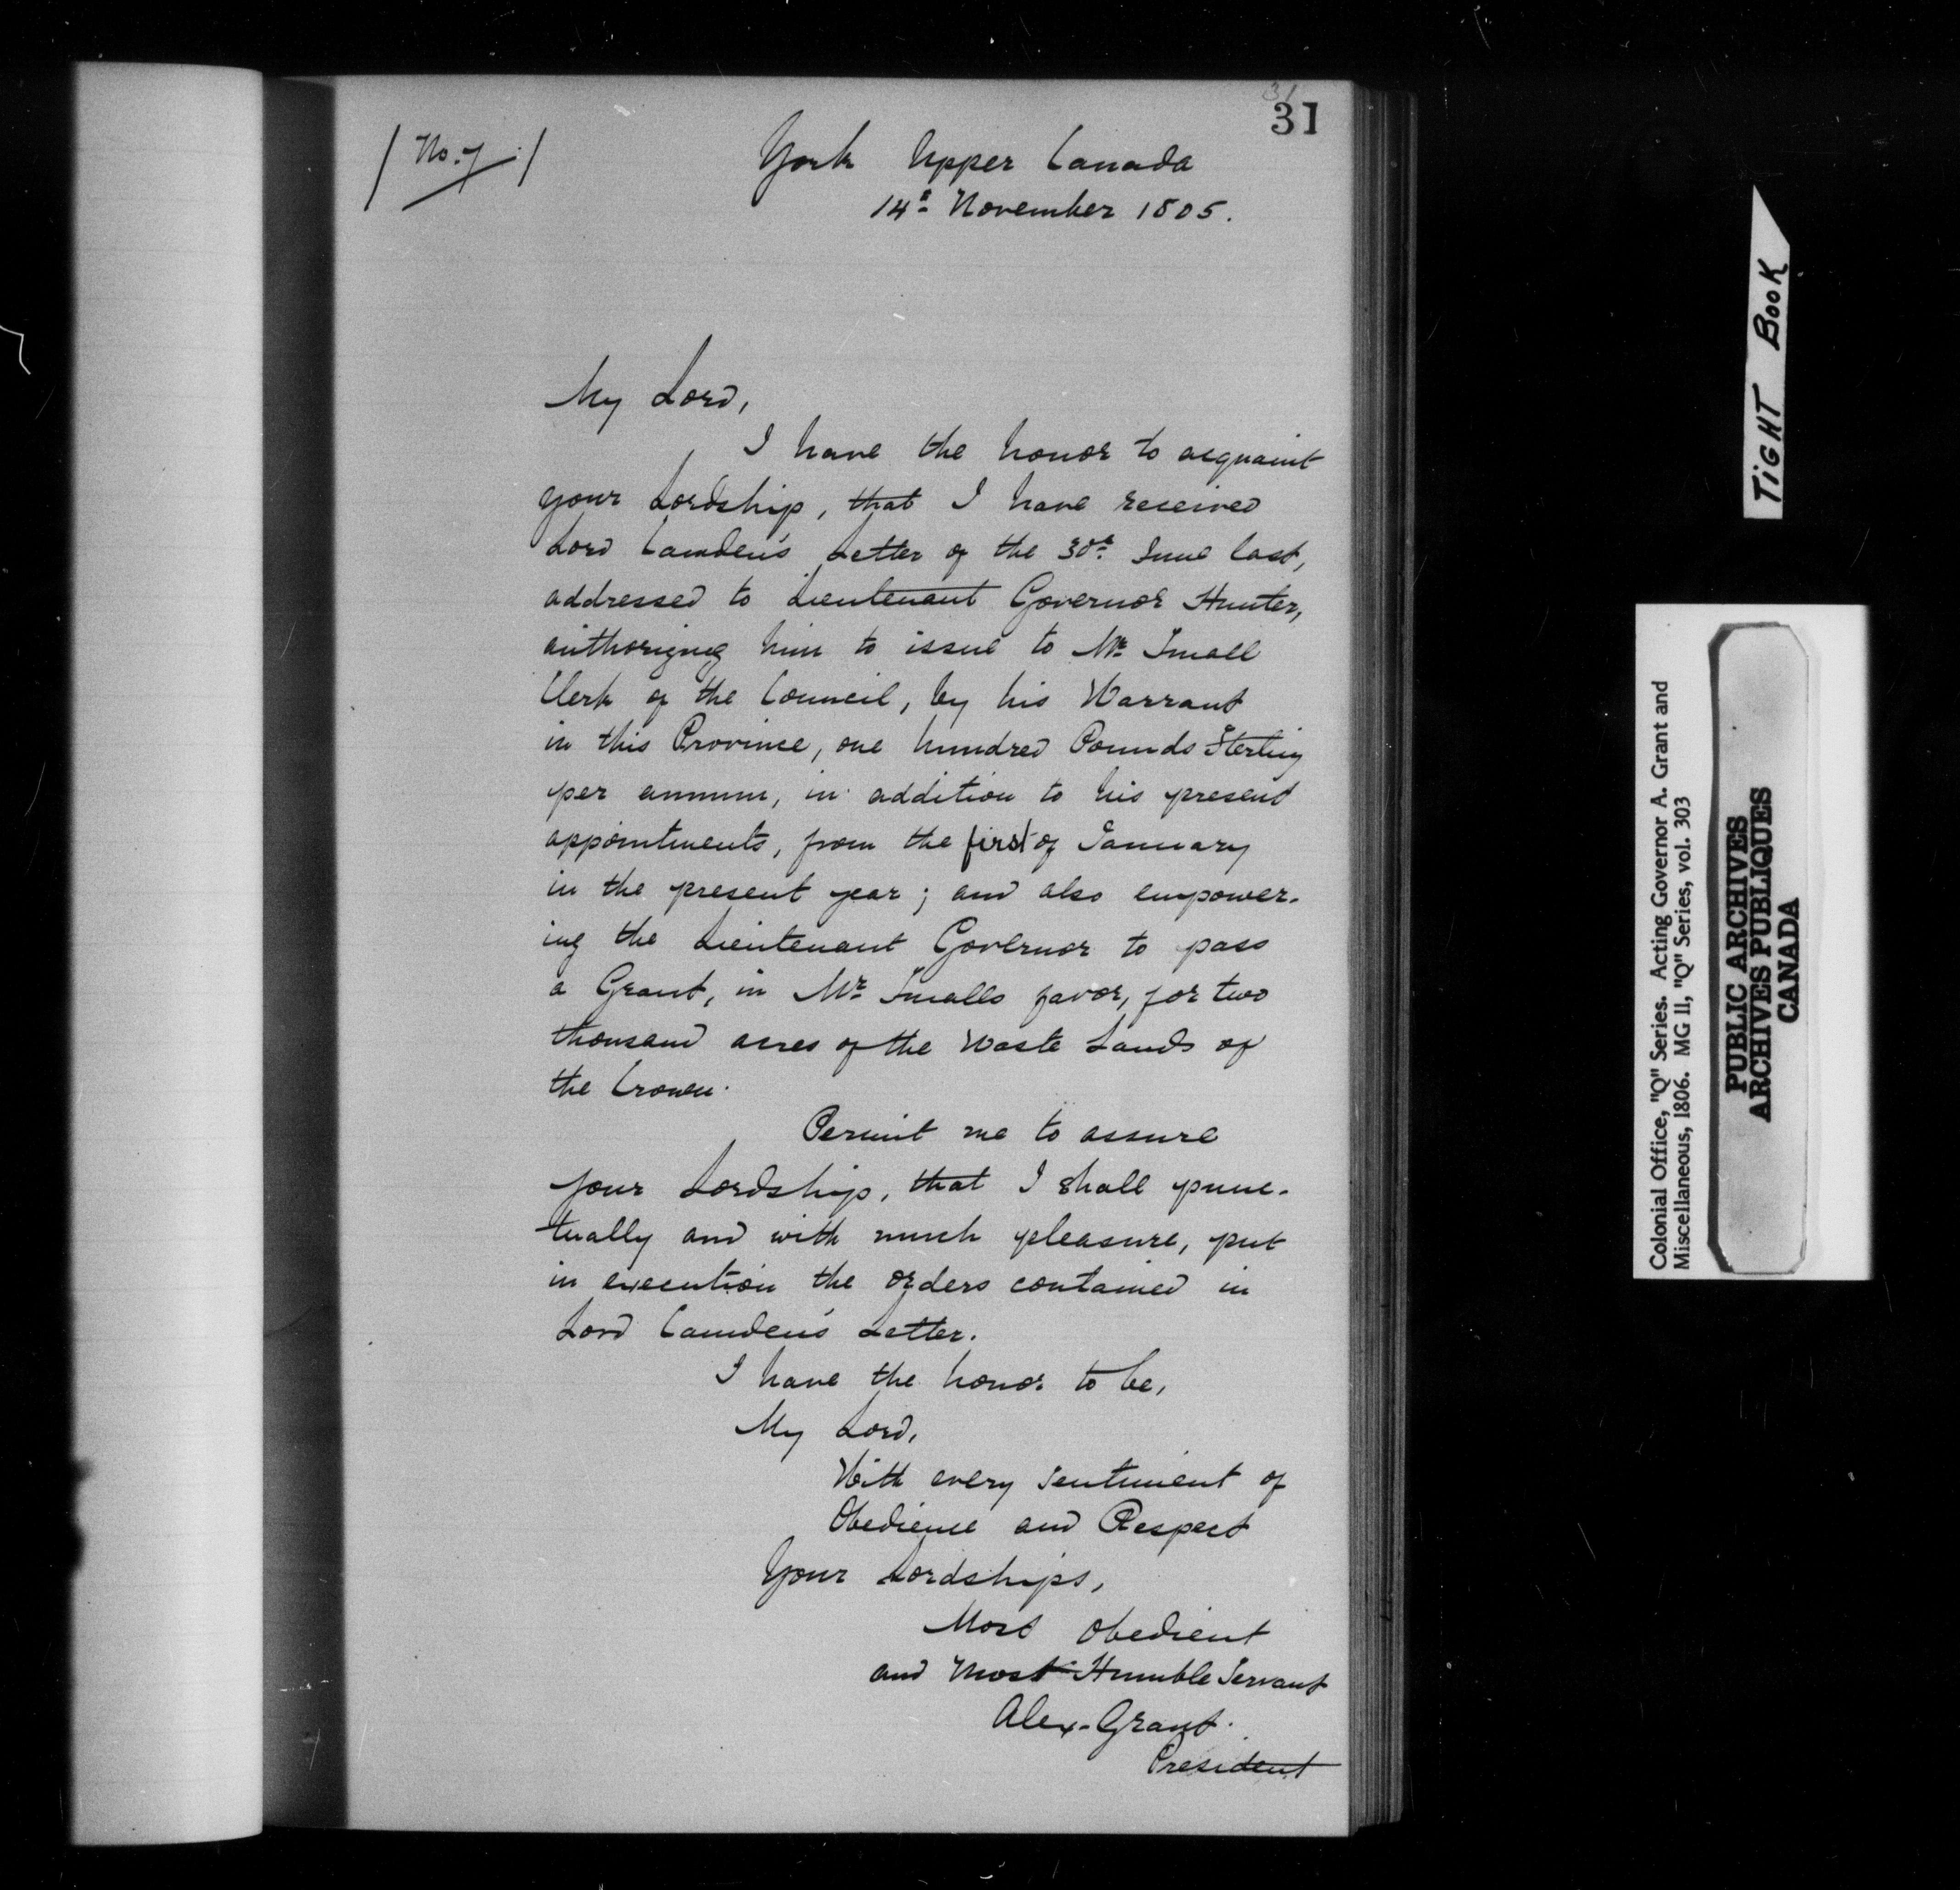 31
31
/ No. 7. /
York Upper Canada
14th November 1805.
My Lord,
I have the honor to acquaint
your Lordship, that I have received
Lord Camden's Letter of the 30th June last,
addressed to Lieutenant Governor Hunter,
authorizing him to issue to Mr Small
Clerk of the Council, by his Warrant
in this Province, one hundred Pounds Sterling
per annum, in addition to his present
appointments, from the first of January
in the present year; and also empower-
ing the Lieutenant Governor to pass
a Grant, in Mr Smalls favor, for two
thousand acres of the Waste Lands of
the Crown.
Permit me to assure
your Lordship, that I shall punc-
tually and with much pleasure, put
in execution the orders contained in
Lord Camden's Letter.
I have the honor to be,
My Lord,
With every sentiment of
Obedience and Respect
Your Lordships,
Most Obedient
and Most Humble Servant
Alex. Grant.
President
TIGHT BOOK
Colonial Office, "Q" Series. Acting Governor A. Grant and
Miscellaneous, 1806. MG 11, "Q" Series, vol. 303
PUBLIC ARCHIVES
ARCHIVES PUBLIQUES
CANADA